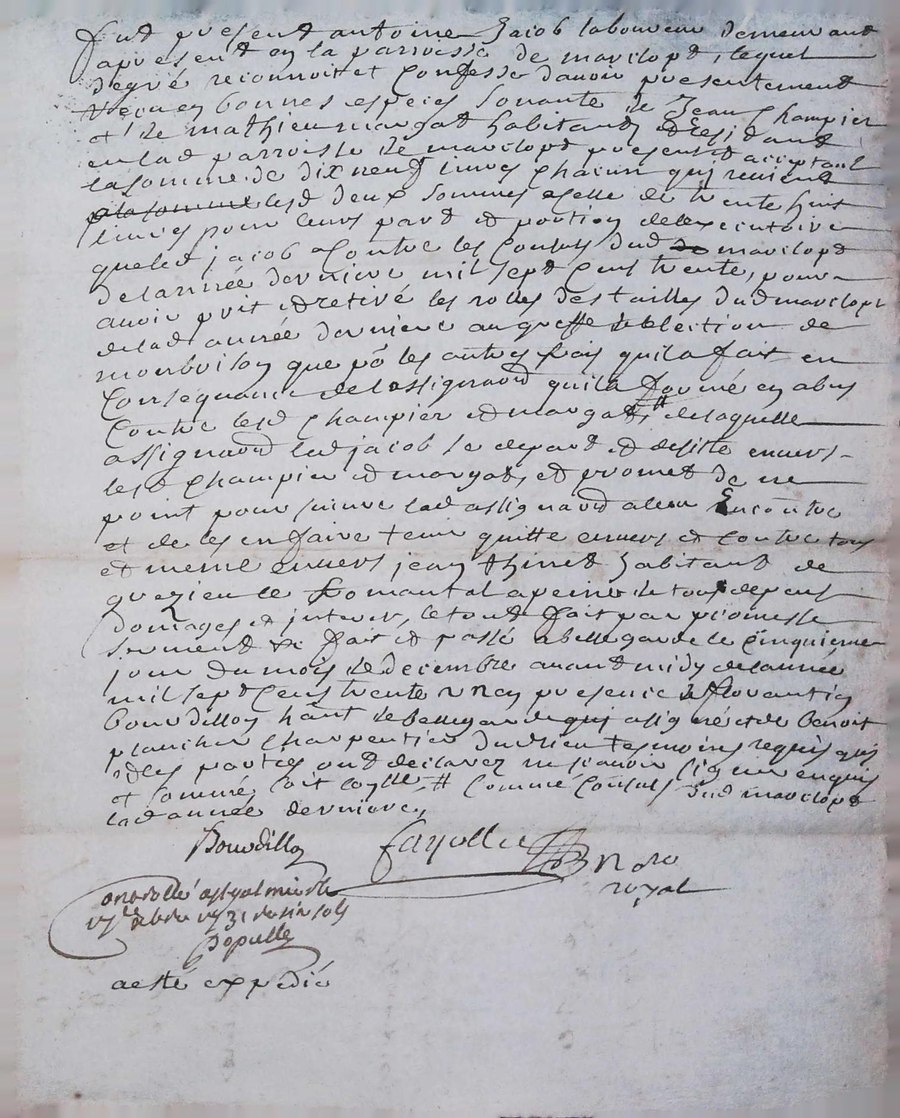 fut present antoine Jacob laboureur demeurant
apresent en la parroisse de marilopt, lequel
degré reconnoit et Confesse davoir presentement
receu en bonnes especes sonante de Jean Champier
et de mathieu margat habitants et residants
en lad parroisse de marclopt presents et acceptant
la somme de dix neuf livres chacun qui revient
a la somme lesd deux sommes a celle de trente huit
livres pour leurs part et portion de lexecutoire
que led jacob a Contre les Consuls dud marclopt
de lannée derniere mil sept cens trente, pour
avoir prit et retiré les rolles des tailles dud marclopt
de lad année derniere au greffe de lelection de
montbrison que po les autres frais quil a fait en
Consequance de lassignaon quil a formé en abus
Contre lesd Champier et margat, # de laquelle
assignaon led jacob se depart et desiste envers
lesd Champier et margat, et promet de ne
point poursuivre lad assignaon a leur Encontre
et de les en faire tenir quitte envers et contre tous
et meme envers jean thinet habitant de
le Comantal a peine de tous depens
domages et interets, le tout fait par promesse
serment &c fait et passé a bellegarde le cinquieme
jour du mois de decembre avant midy de lannée
mil sept Cens trente un en presence de florantin
Bourdillon hant de bellegarde qui a signé et de Benoit
plancher charpentier dud lieu tesmoins requis qui
et les parties ont declarez ne scavoir signer enquis
et sommé, soit Comme Consuls dud marclopt
lad année derniere,
Bourdillon Fayolle Nore
royal
Controllé a st galmier le
xbre 1731 recu six sols
Populle
a esté expedié